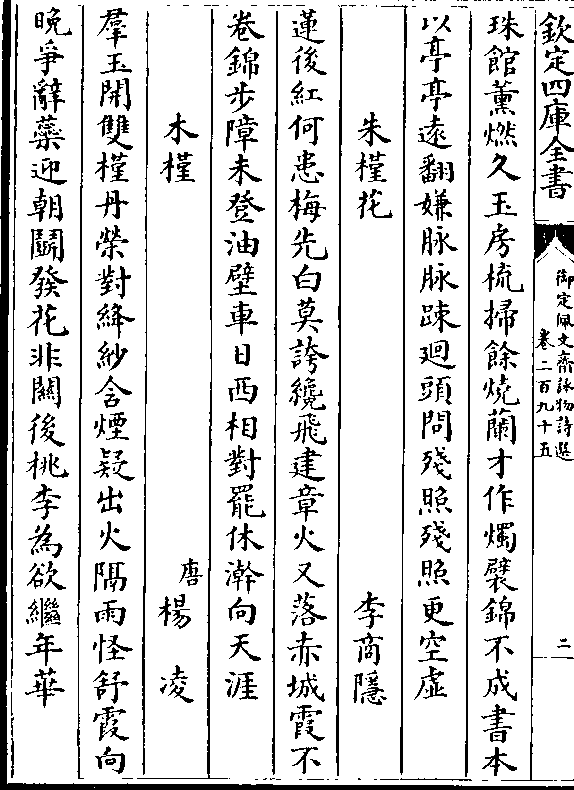 欽定四庫全書
御定佩文齋詠物詩選
卷二百九十五
二
珠館薰燃久玉房梳掃餘燒蘭才作燭襞錦不成書本
以亭亭遠翻嫌脉脉踈廻頭問殘照殘照更空虛
朱槿花 李商隱
蓮後紅何患梅先白莫誇纔飛建章火又落赤城霞不
卷錦步障未登油壁車日西相對罷休澣向天涯
木槿 唐楊凌
羣玉開雙槿丹榮對絳紗含煙疑出火隔雨怪舒霞向
晚爭辭蘂迎朝鬭發花非關後桃李為欲繼年華